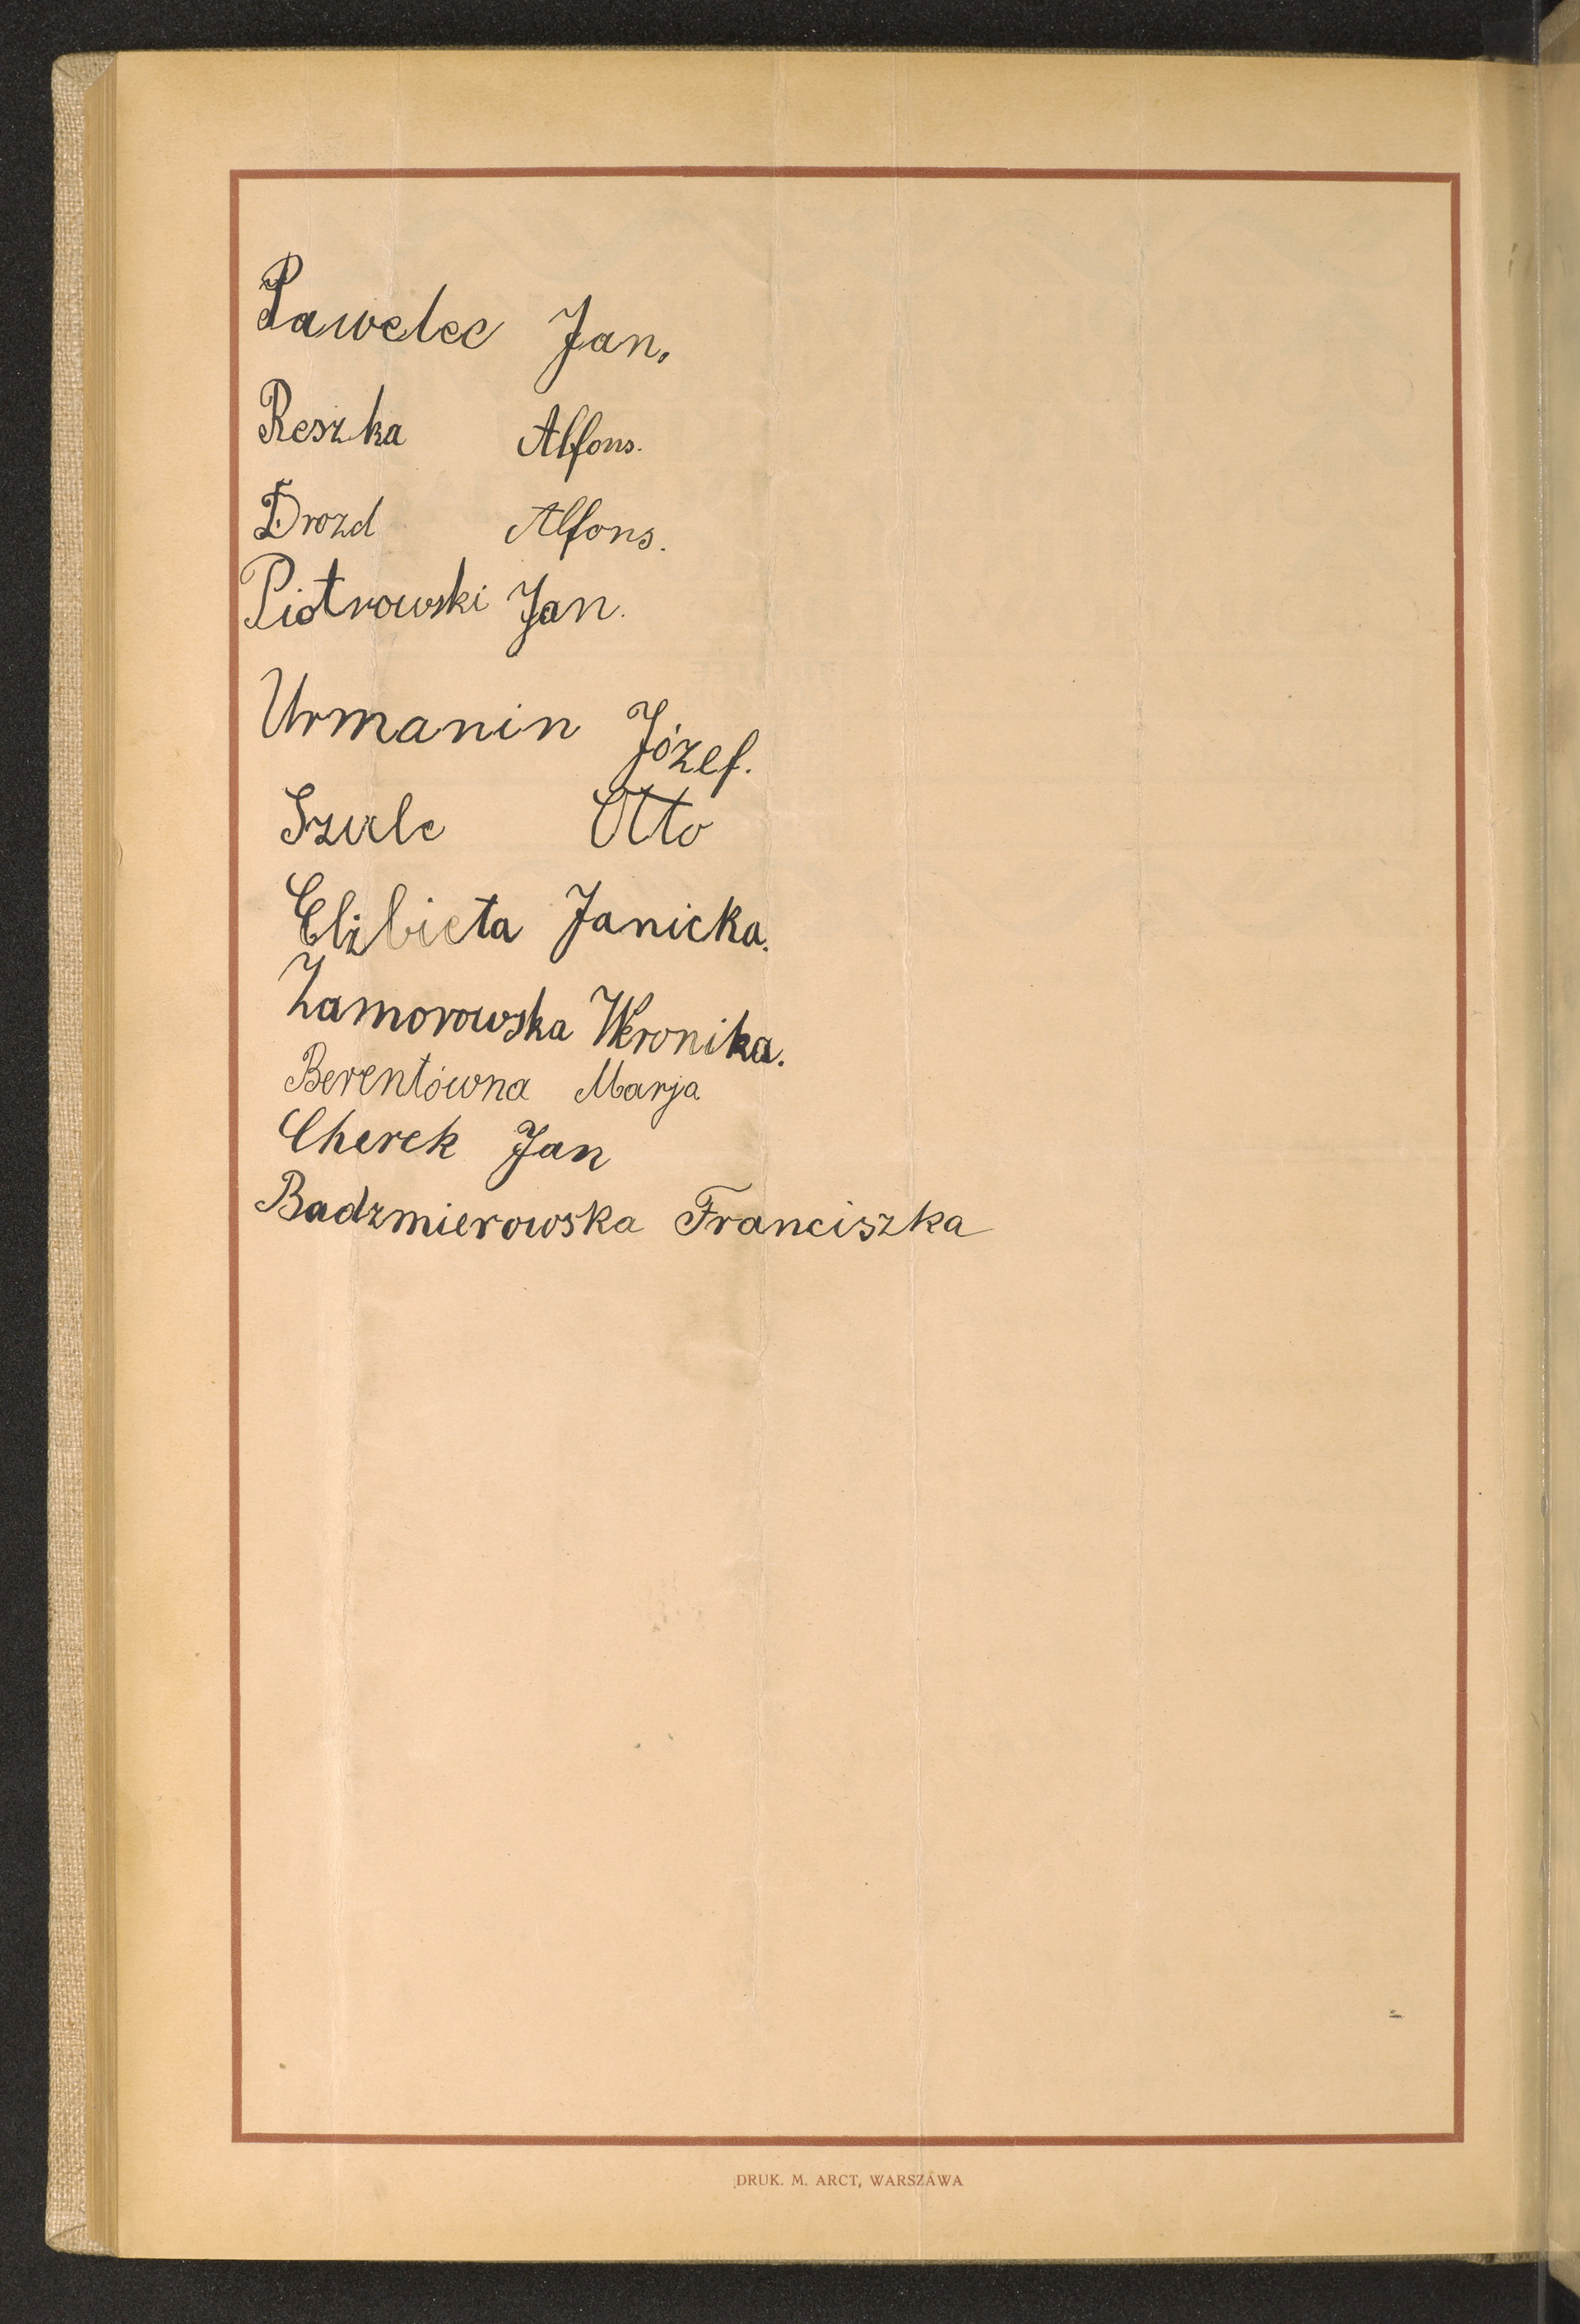 Pawelec Jan.
Reszka Alfons.
Drozd Alfons.
Piotrowski Jan.
Urmanin Józef.
Szulc Otto
Elżbieta Janicka.
Zamorowska Weronika.
Berentówna Marja
Cherek Jan
Badzmierowska Franciszka
DRUK. M. ARCT, WARSZAWA